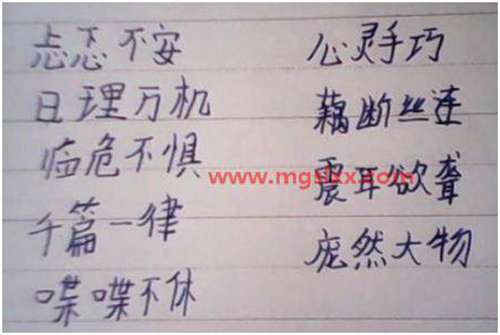 忐忑不安
日理万机
临危不惧
千篇一律
喋喋不休
心灵手巧
藕断丝连
震耳欲聋
庞然大物